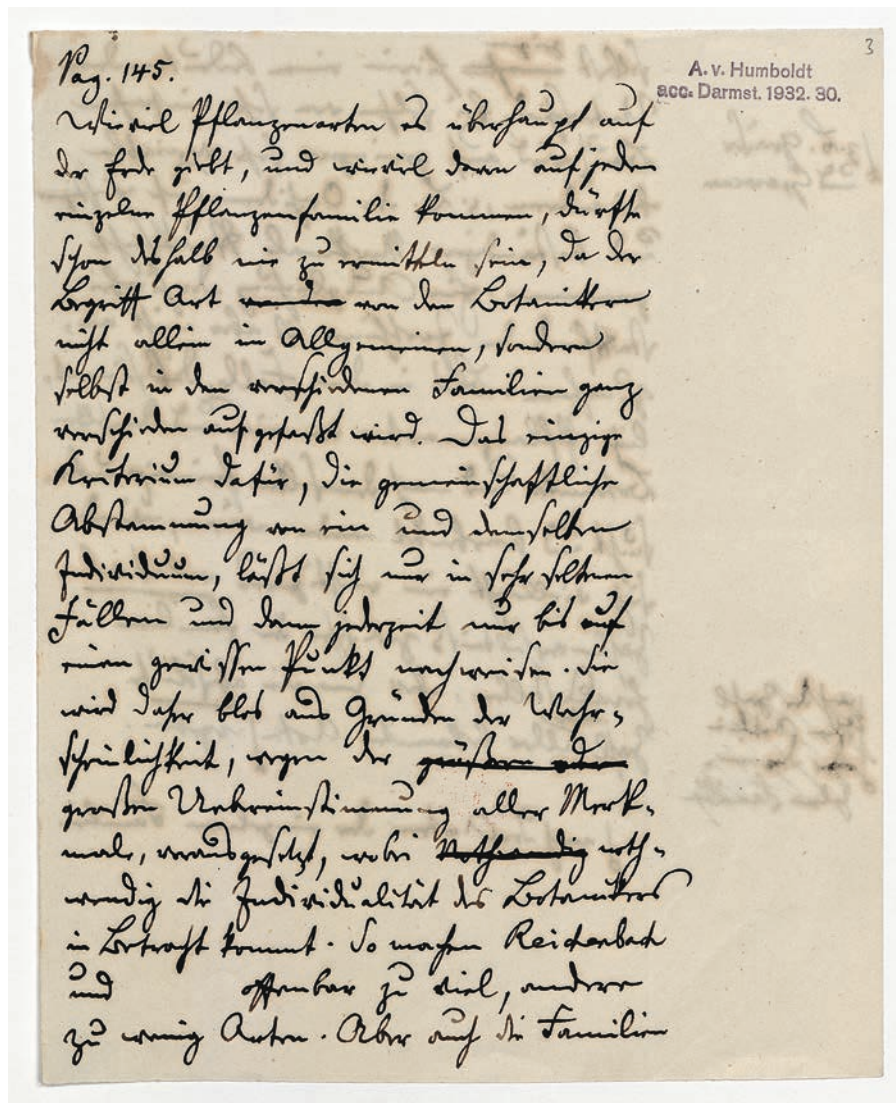 3
A. v. Humboldt
acc. Darmst. 1932. 30.
Pag. 145.
Wieviel Pflanzenarten es überhaupt auf
der Erde giebt, und wieviel deren auf jeden
einzelne Pflanzenfamilie kommen, dürfte
schon deshalb nie zu ermitteln sein, da der
Begriff Art werden von den Botanikern
nicht allein in Allgemeinen, sondern
selbst in den verschiedenen Familien ganz
verschieden aufgefaßt wird. Das einzige
Kriterium dafür, die gemeinschaftliche
Abstammung von ein und demselben
Individuum, läßt sich nur in sehr seltenen
Fällen und dann jederzeit nur bis auf
einen gewissen Punkt nachweisen. Sie
wird daher blos aus Gründen der Wahr-
scheinlichkeit, wegen der größern oder
großen Uebereinstimmung aller Merk-
male, vorausgesetzt, wobei Nothwendig noth-
wendig die Individualität des Botanikers
in Betracht kommt. So machen Reichenbach
und offenbar zu viel, andere
zu wenig Arten. Aber auch die Familien